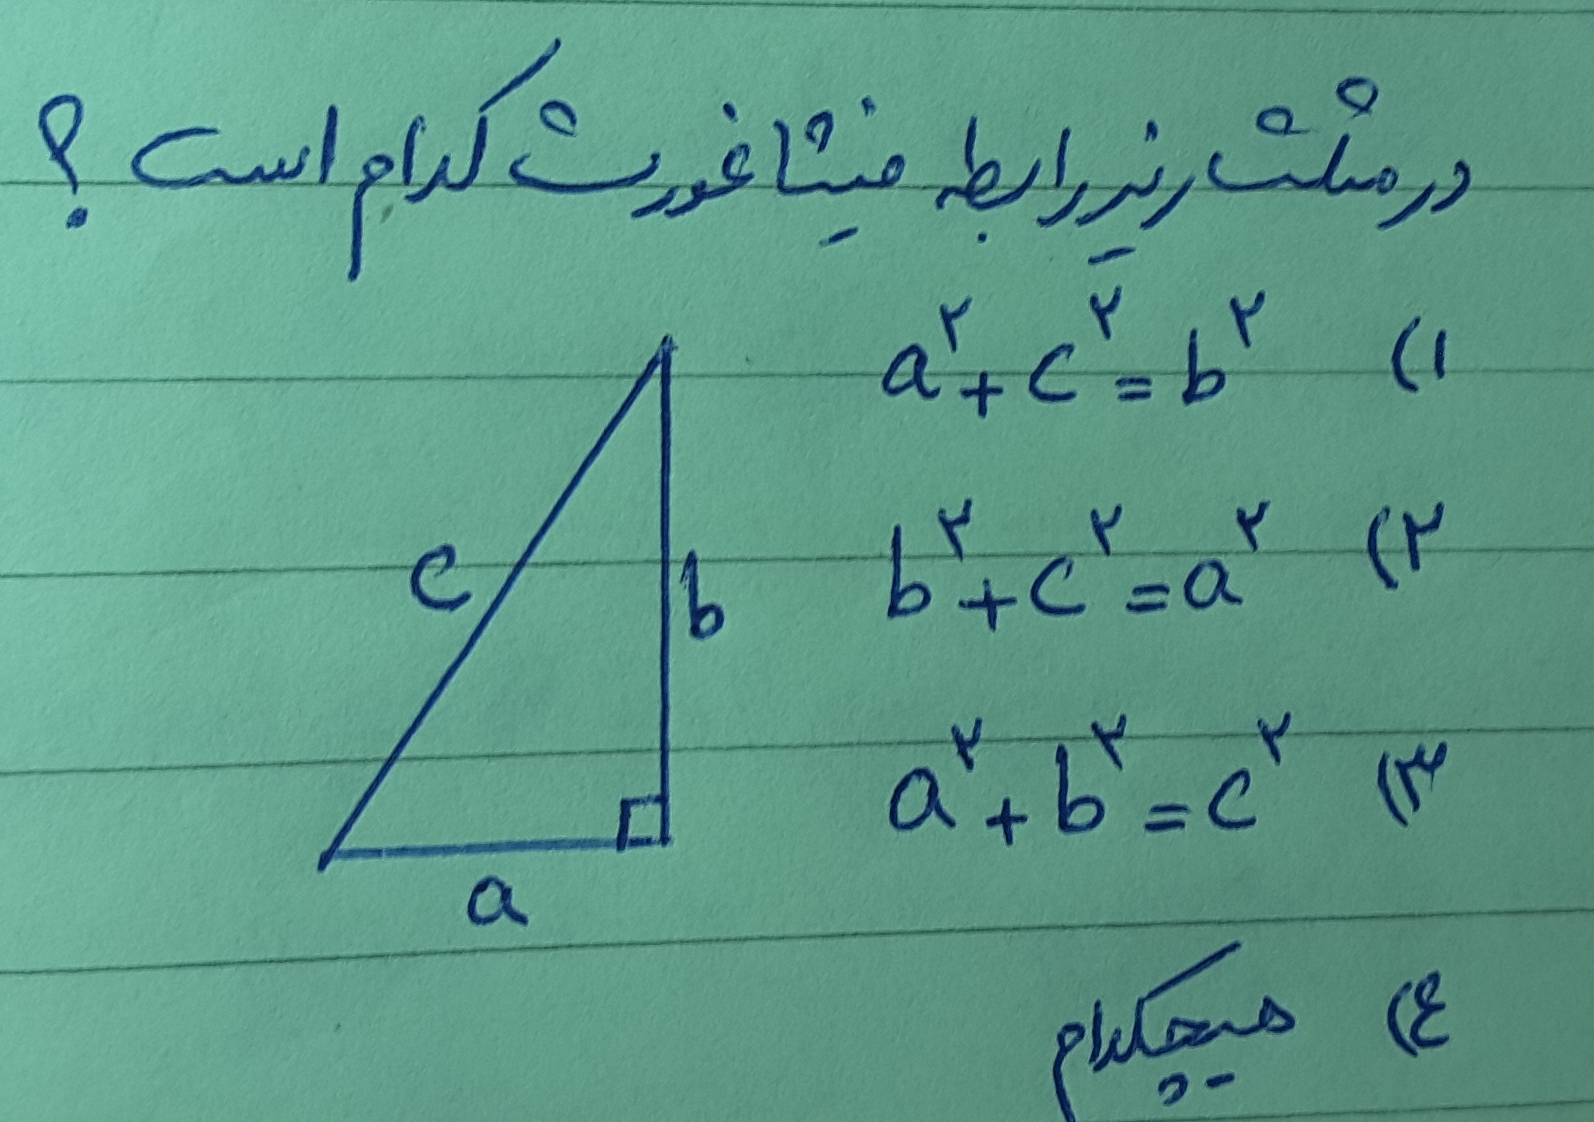 در مثلث زیر رابطه فیثاغورث کدام است ؟
۱) a^۲ + c^۲ = b^۲
۲) b^۲ + c^۲ = a^۲
۳) a^۲ + b^۲ = c^۲
۴) هیچکدام
c
b
a